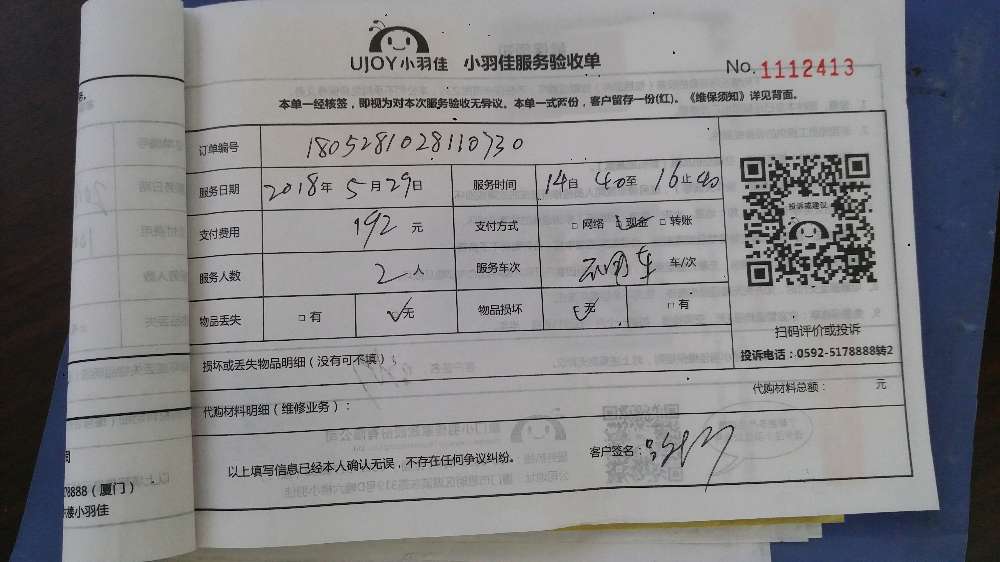 UJOY小羽佳 小羽佳服务验收单
No. 1112413
本单一经核签，即视为对本次服务验收无异议。本单一式两份，客户留存一份(红)。《维保须知》详见背面。
订单编号 1805281028110730
服务日期 2018年5月29日 服务时间 14自40至16止40
支付费用 192元 支付方式 □网络 ☑现金 □转账
服务人数 2人 服务车次 不用车 车/次
物品丢失 □有 ☑无 物品损坏 ☑无 □有
投诉或建议
扫码评价或投诉
投诉电话：0592-5178888转2
损坏或丢失物品明细（没有可不填）：
代购材料明细（维修业务）： 代购材料总额： 元
以上填写信息已经本人确认无误，不存在任何争议纠纷。 客户签名：
78888（厦门）
小羽佳